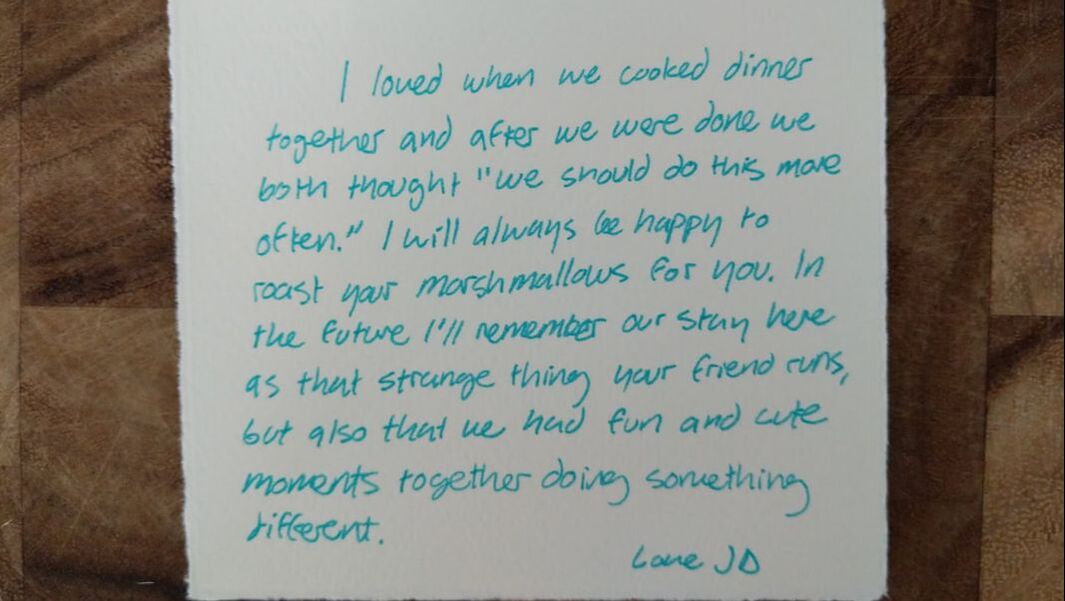 I loved when we cooked dinner
together and after we were done we
both thought "we should do this more
often." I will always be happy to
roast your marshmallows for you. In
the future I'll remember our stay here
as that strange thing your friend runs,
but also that we had fun and cute
moments together doing something
different.
Love JD